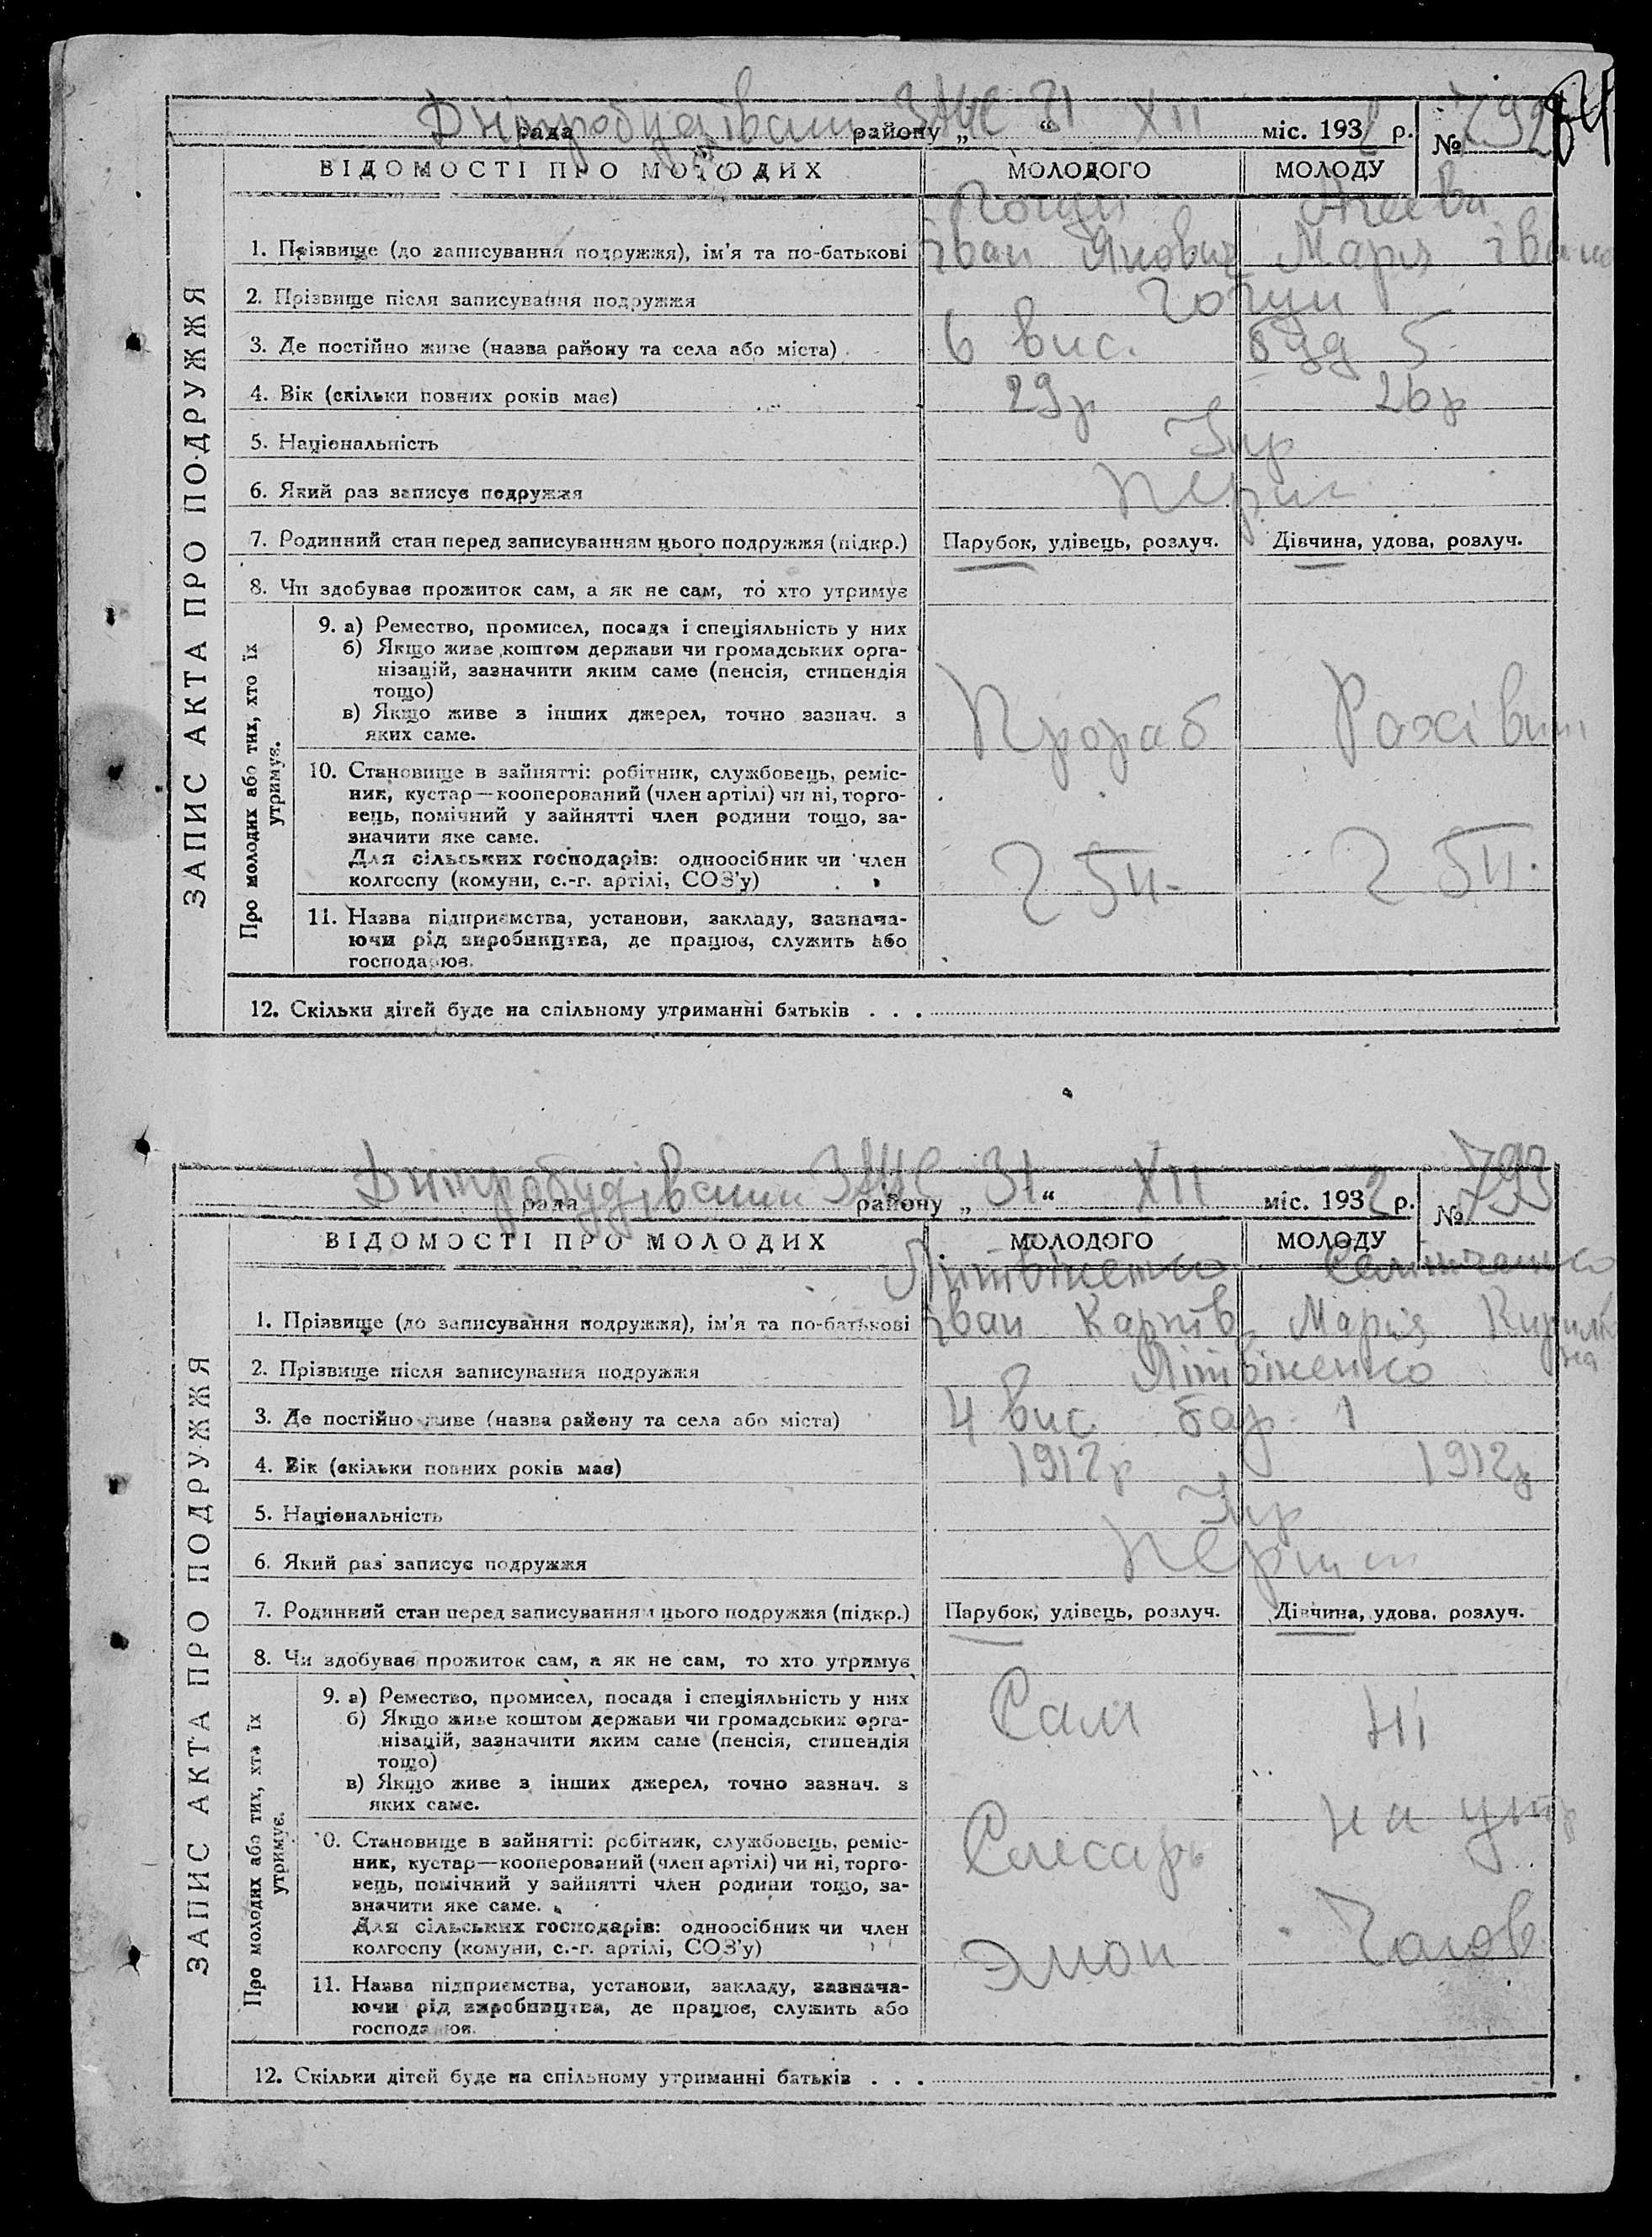 Дніпробудівський ЗАГС 31 XII
рада району „ “ міс. 1932 р. № 792
ВІДОМОСТІ ПРО МОЛОДИХ МОЛОДОГО МОЛОДУ
1. Прізвище (до записування подружжя), ім’я та по-батькові Іван Янович Марія Івано
2. Прізвище після записування подружжя
3. Де постійно живе (назва району та села або міста) 6 вис. буд 5
4. Вік (скільки повних років має) 29р 26р
5. Національність Укр
6. Який раз записує подружжя перш
7. Родинний стан перед записуванням цього подружжя (підкр.) Парубок, удівець, розлуч. Дівчина, удова, розлуч.
8. Чи здобуває прожиток сам, а як не сам, то хто утримує
ЗАПИС АКТА ПРО ПОДРУЖЖЯ
Про молодих або тих, хто їх утримує.
9. а) Ремество, промисел, посада і спеціяльність у них
б) Якщо живе коштом держави чи громадських орга-
нізацій, зазначити яким саме (пенсія, стипендія
тощо)
в) Якщо живе з інших джерел, точно зазнач. з
яких саме.
Прораб Рахівник
10. Становище в зайнятті: робітник, службовець, реміс-
ник, кустар—кооперований (член артілі) чи ні, торго-
вець, помічний у зайнятті член родини тощо, за-
значити яке саме.
Для сільських господарів: одноосібник чи член
колгоспу (комуни, с.-г. артілі, СОЗ’у)
11. Назва підприємства, установи, закладу, зазнача-
ючи рід виробництва, де працює, служить або
господарює.
12. Скільки дітей буде на спільному утриманні батьків . . .
Дніпробудівський ЗАГС 31 XII
рада району „ “ міс. 1932 р. № 793
ВІДОМОСТІ ПРО МОЛОДИХ МОЛОДОГО МОЛОДУ
Літвіненко
1. Прізвище (до записування подружжя), ім’я та по-батькові Іван Карпів. Марія Кирилів
на
2. Прізвище після записування подружжя Літвіненко
3. Де постійно живе (назва району та села або міста) 4 вис. бар. 1
4. Вік (скільки повних років має) 1912р 1912р
5. Національність Укр
6. Який раз записує подружжя перший
7. Родинний стан перед записуванням цього подружжя (підкр.) Парубок, удівець, розлуч. Дівчина, удова, розлуч.
8. Чи здобуває прожиток сам, а як не сам, то хто утримує
ЗАПИС АКТА ПРО ПОДРУЖЖЯ
Про молодих або тих, хто їх утримує.
9. а) Ремество, промисел, посада і спеціяльність у них
б) Якщо живе коштом держави чи громадських орга-
нізацій, зазначити яким саме (пенсія, стипендія
тощо)
в) Якщо живе з інших джерел, точно зазнач. з
яких саме.
Сам Ні
10. Становище в зайнятті: робітник, службовець, реміс-
ник, кустар—кооперований (член артілі) чи ні, торго-
вець, помічний у зайнятті член родини тощо, за-
значити яке саме.
Для сільських господарів: одноосібник чи член
колгоспу (комуни, с.-г. артілі, СОЗ’у)
Слесарь на утр
11. Назва підприємства, установи, закладу, зазнача-
ючи рід виробництва, де працює, служить або
господарює.
12. Скільки дітей буде на спільному утриманні батьків . . .